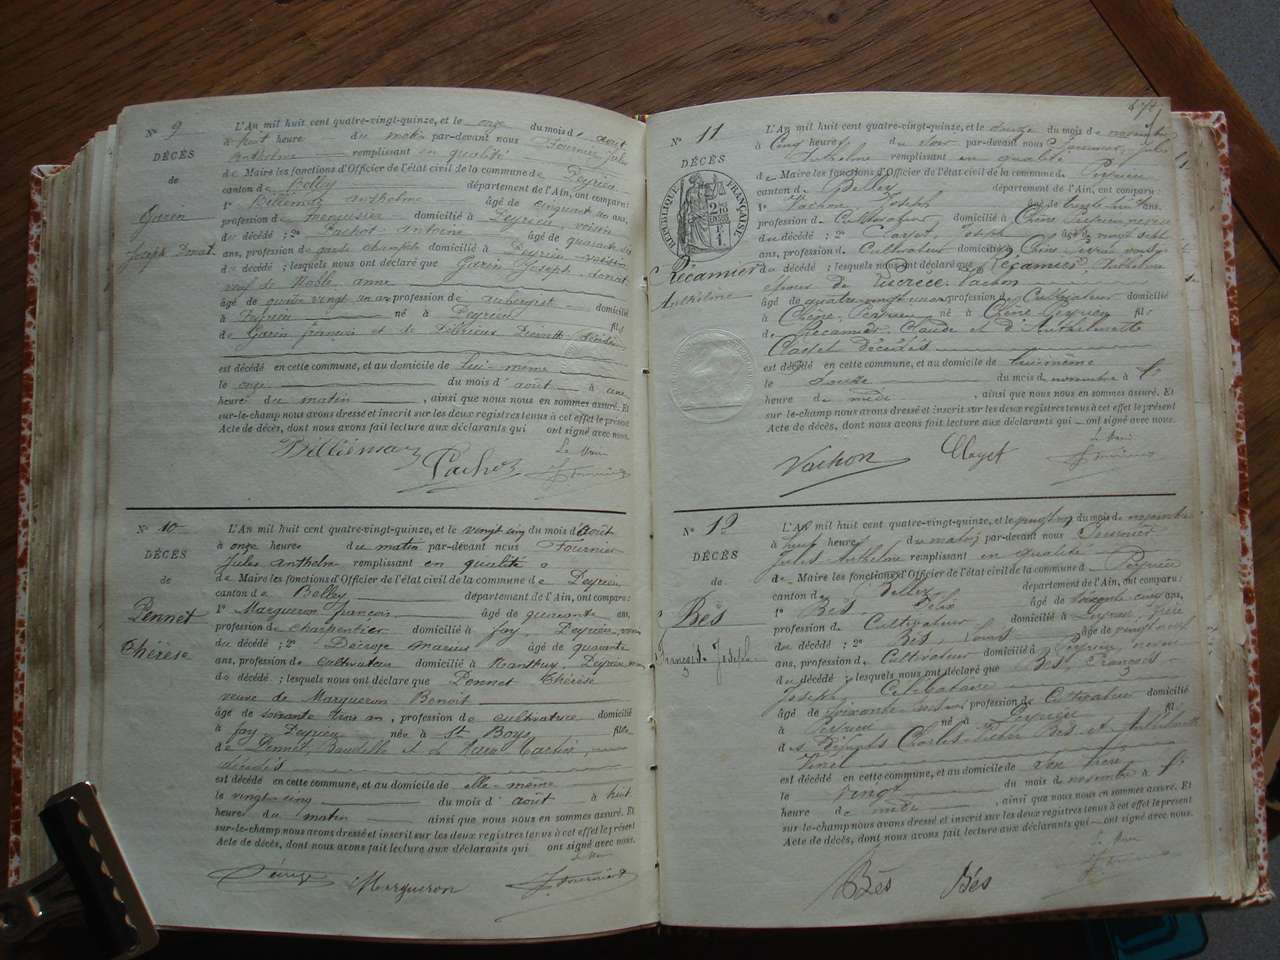 N° 9
DÉCÈS
de
Garin
Joseph Donat
L'An mil huit cent quatre-vingt-quinze, et le onze du mois d'août
à huit heure du matin par-devant nous Fournier Jules
Anthelme remplissant en qualité
de Maire les fonctions d'Officier de l'état civil de la commune de Peyrieu
canton de Belley département de l'Ain, ont comparu :
1° Billiemaz anthelme âgé de cinquante ans,
profession de menuisier domicilié à Peyrieu, voisin
du décédé ; 2° Pachot antoine âgé de quarante six
ans, profession de garde champêtre domicilié à Peyrieu voisin
du décédé ; lesquels nous ont déclaré que Garin Joseph donat
veuf de anne
âgé de quatre vingt ans profession de aubergiste domicilié
à Peyrieu né à Peyrieu fils
de Garin françois et de décédés
est décédé en cette commune, et au domicile de lui-même
le onze du mois d'août à une
heure du matin , ainsi que nous nous en sommes assuré. Et
sur-le-champ nous avons dressé et inscrit sur les deux registres tenus à cet effet le présent
Acte de décès, dont nous avons fait lecture aux déclarants qui ont signé avec nous.
Le Maire
Billiemaz Pachot J. Fournier
N° 10
DÉCÈS
de
Pennet
Thérèse
L'An mil huit cent quatre-vingt-quinze, et le vingt cinq du mois d'août
à onze heure du matin par-devant nous Fournier
Jules anthelme remplissant en qualité
de Maire les fonctions d'Officier de l'état civil de la commune de Peyrieu
canton de Belley département de l'Ain, ont comparu :
1° Margueron françois âgé de quarante ans,
profession de charpentier domicilié à fay, Peyrieu,
du décédé ; 2° marius âgé de quarante
ans, profession de cultivateur domicilié à Peyrieu
du décédé ; lesquels nous ont déclaré que Pennet Thérèse
veuve de Margueron Benoit
âgé de soixante trois an, profession de cultivatrice domicilié
à fay Peyrieu née à St Boys fille
de Pennet et de
décédés
est décédé en cette commune, et au domicile de elle-même
le vingt cinq du mois d'août à huit
heure du matin ainsi que nous nous en sommes assuré. Et
sur-le-champ nous avons dressé et inscrit sur les deux registres tenus à cet effet le présent
Acte de décès, dont nous avons fait lecture aux déclarants qui ont signé avec nous.
Le Maire
Margueron J. Fournier
N° 11
DÉCÈS
RÉPUBLIQUE FRANÇAISE
Récamier
Anthelme
L'An mil huit cent quatre-vingt-quinze, et le douze du mois de novembre
à cinq heures du soir par-devant nous Fournier Jules
Anthelme remplissant en qualité
de Maire les fonctions d'Officier de l'état civil de la commune de Peyrieu
canton de Belley département de l'Ain, ont comparu :
1° Vachon Joseph âgé de ans,
profession de Cultivateur domicilié à Peyrieu
du décédé ; 2° Clayet Joseph âgé de vingt sept
ans, profession de Cultivateur domicilié à Peyrieu
du décédé ; lesquels nous ont déclaré que Récamier Anthelme
époux de Lucrèce Vachon
âgé de quatre-vingt ans profession de Cultivateur domicilié
à Peyrieu né à Peyrieu fils
de Récamier Claude et d'Anthelmette
Clayet décédés
est décédé en cette commune, et au domicile de lui-même
le douze du mois de novembre à
heure de midi , ainsi que nous nous en sommes assuré. Et
sur-le-champ nous avons dressé et inscrit sur les deux registres tenus à cet effet le présent
Acte de décès, dont nous avons fait lecture aux déclarants qui ont signé avec nous.
Le Maire
Vachon Clayet J. Fournier
N° 12
DÉCÈS
de
Bés
François Joseph
L'An mil huit cent quatre-vingt-quinze, et le du mois de novembre
à huit heure du matin par-devant nous Fournier
Jules Anthelme remplissant en qualité
de Maire les fonctions d'Officier de l'état civil de la commune de Peyrieu
canton de Belley département de l'Ain, ont comparu :
1° Bés Félix âgé de soixante cinq ans,
profession de Cultivateur domicilié à Peyrieu frère
du décédé ; 2° Bés Louis âgé de vingt neuf
ans, profession de Cultivateur domicilié à Peyrieu neveu
du décédé ; lesquels nous ont déclaré que Bés François
Joseph Célibataire
âgé de soixante ans, profession de Cultivateur domicilié
à Peyrieu né à Peyrieu fils
des Défunts Charles Bés et Anthelmette
est décédé en cette commune, et au domicile de son frère
le vingt du mois de novembre à
heure de midi , ainsi que nous nous en sommes assuré. Et
sur-le-champ nous avons dressé et inscrit sur les deux registres tenus à cet effet le présent
Acte de décès, dont nous avons fait lecture aux déclarants qui ont signé avec nous.
Le Maire
Bés Bés J. Fournier